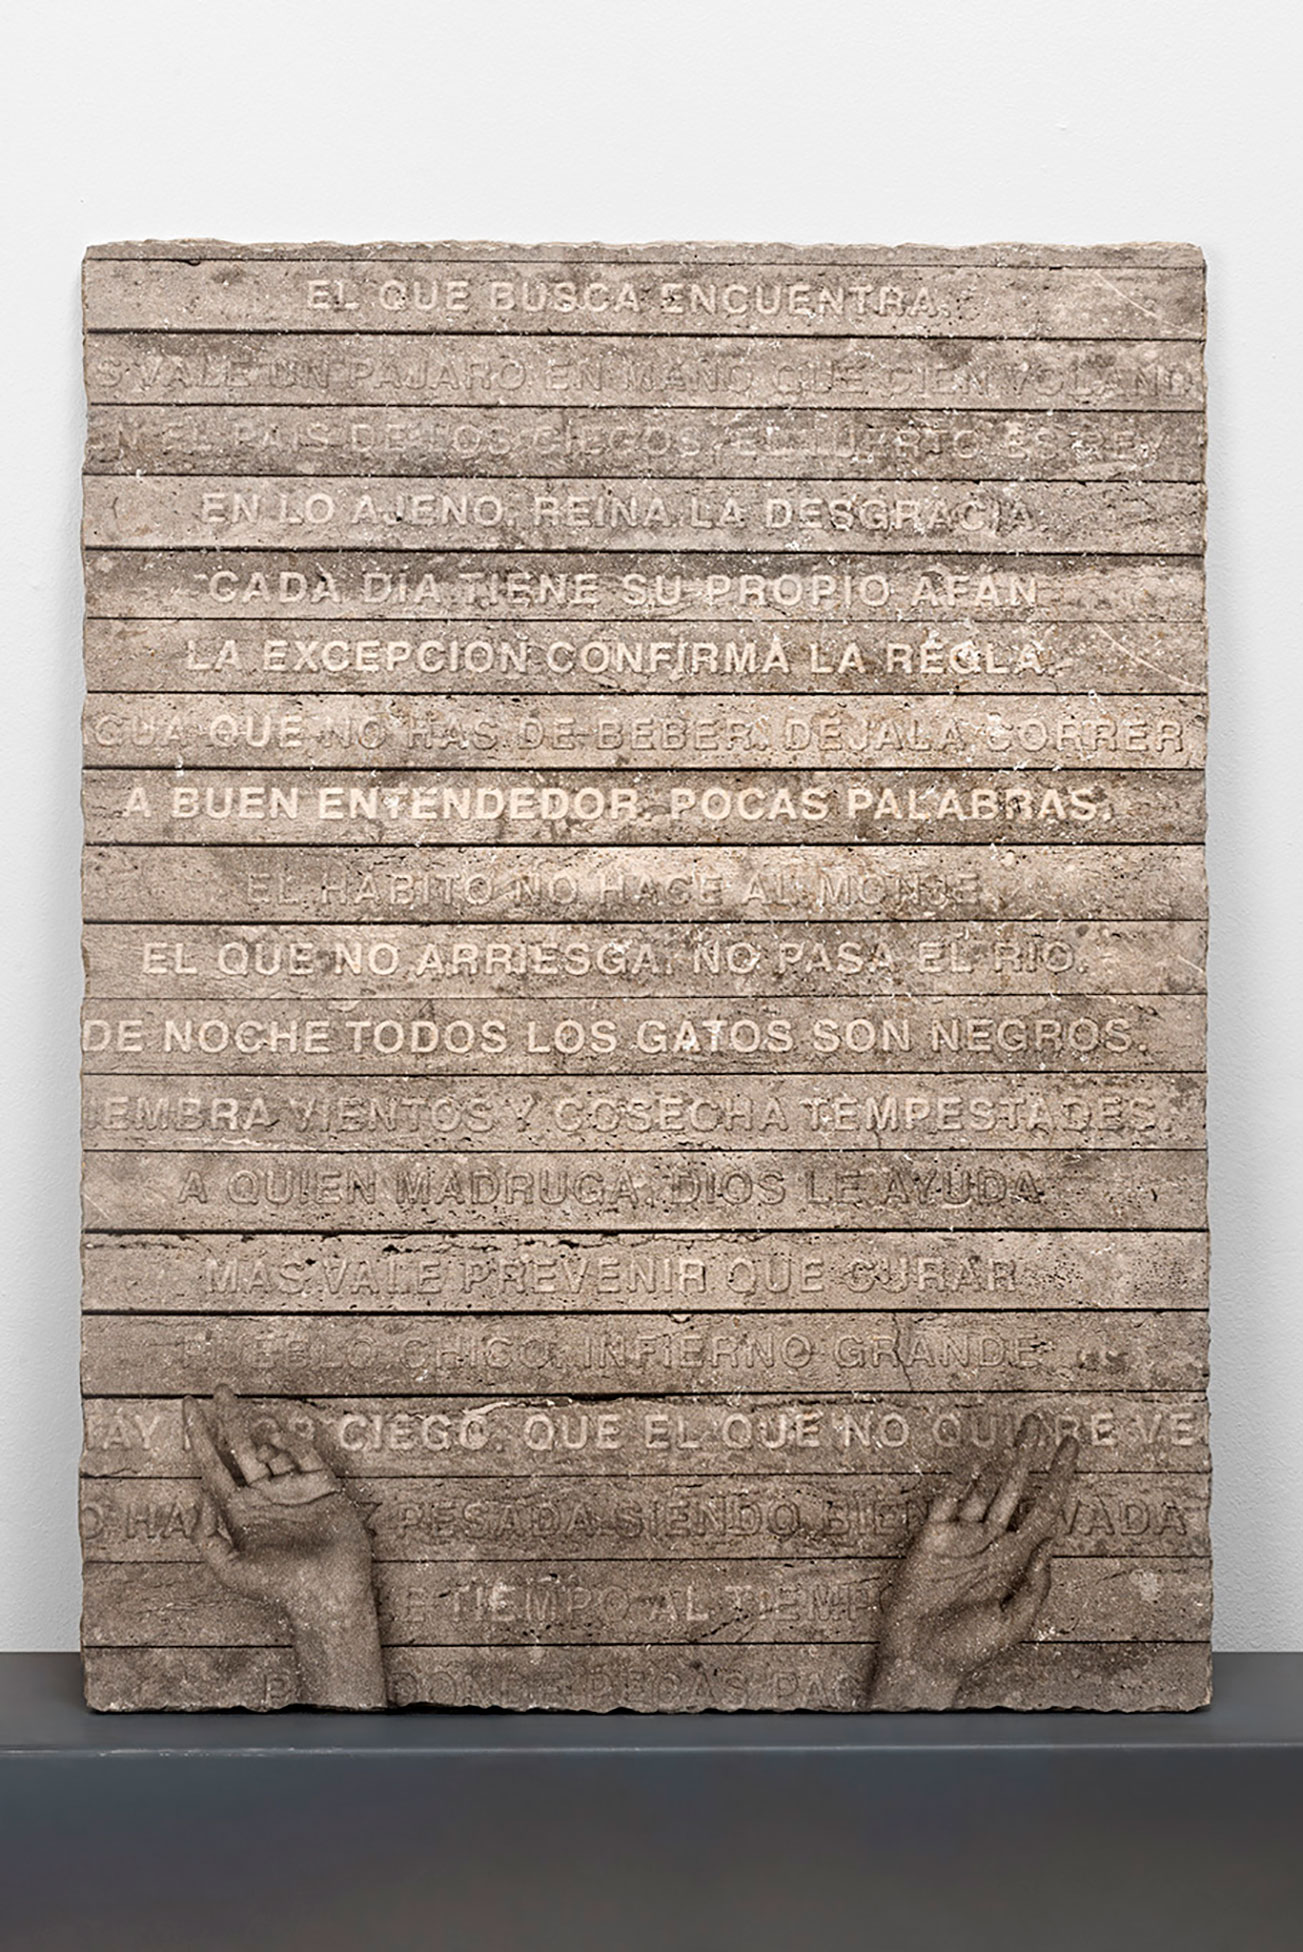 EL QUE BUSCA ENCUENTRA.
S VALE UN PAJARO EN MANO QUE CIEN VOLAND
EN EL PAIS DE LOS CIEGOS, EL TUERTO ES REY
EN LO AJENO, REINA LA DESGRACIA.
CADA DIA TIENE SU PROPIO AFAN
LA EXCEPCION CONFIRMA LA REGLA.
GUA QUE NO HAS DE BEBER, DEJALA CORRER
A BUEN ENTENDEDOR, POCAS PALABRAS.
EL HABITO NO HACE AL MONJE
EL QUE NO ARRIESGA, NO PASA EL RIO.
DE NOCHE TODOS LOS GATOS SON NEGROS.
IEMBRA VIENTOS Y COSECHA TEMPESTADES.
A QUIEN MADRUGA, DIOS LE AYUDA
MAS VALE PREVENIR QUE CURAR
PUEBLO CHICO, INFIERNO GRANDE
AY CIEGO, QUE EL QUE NO QUIERE VE
O HA PESADA SIENDO BIEN VADA
LE TIEMPO AL TIEMP
DONDE PECAS PA